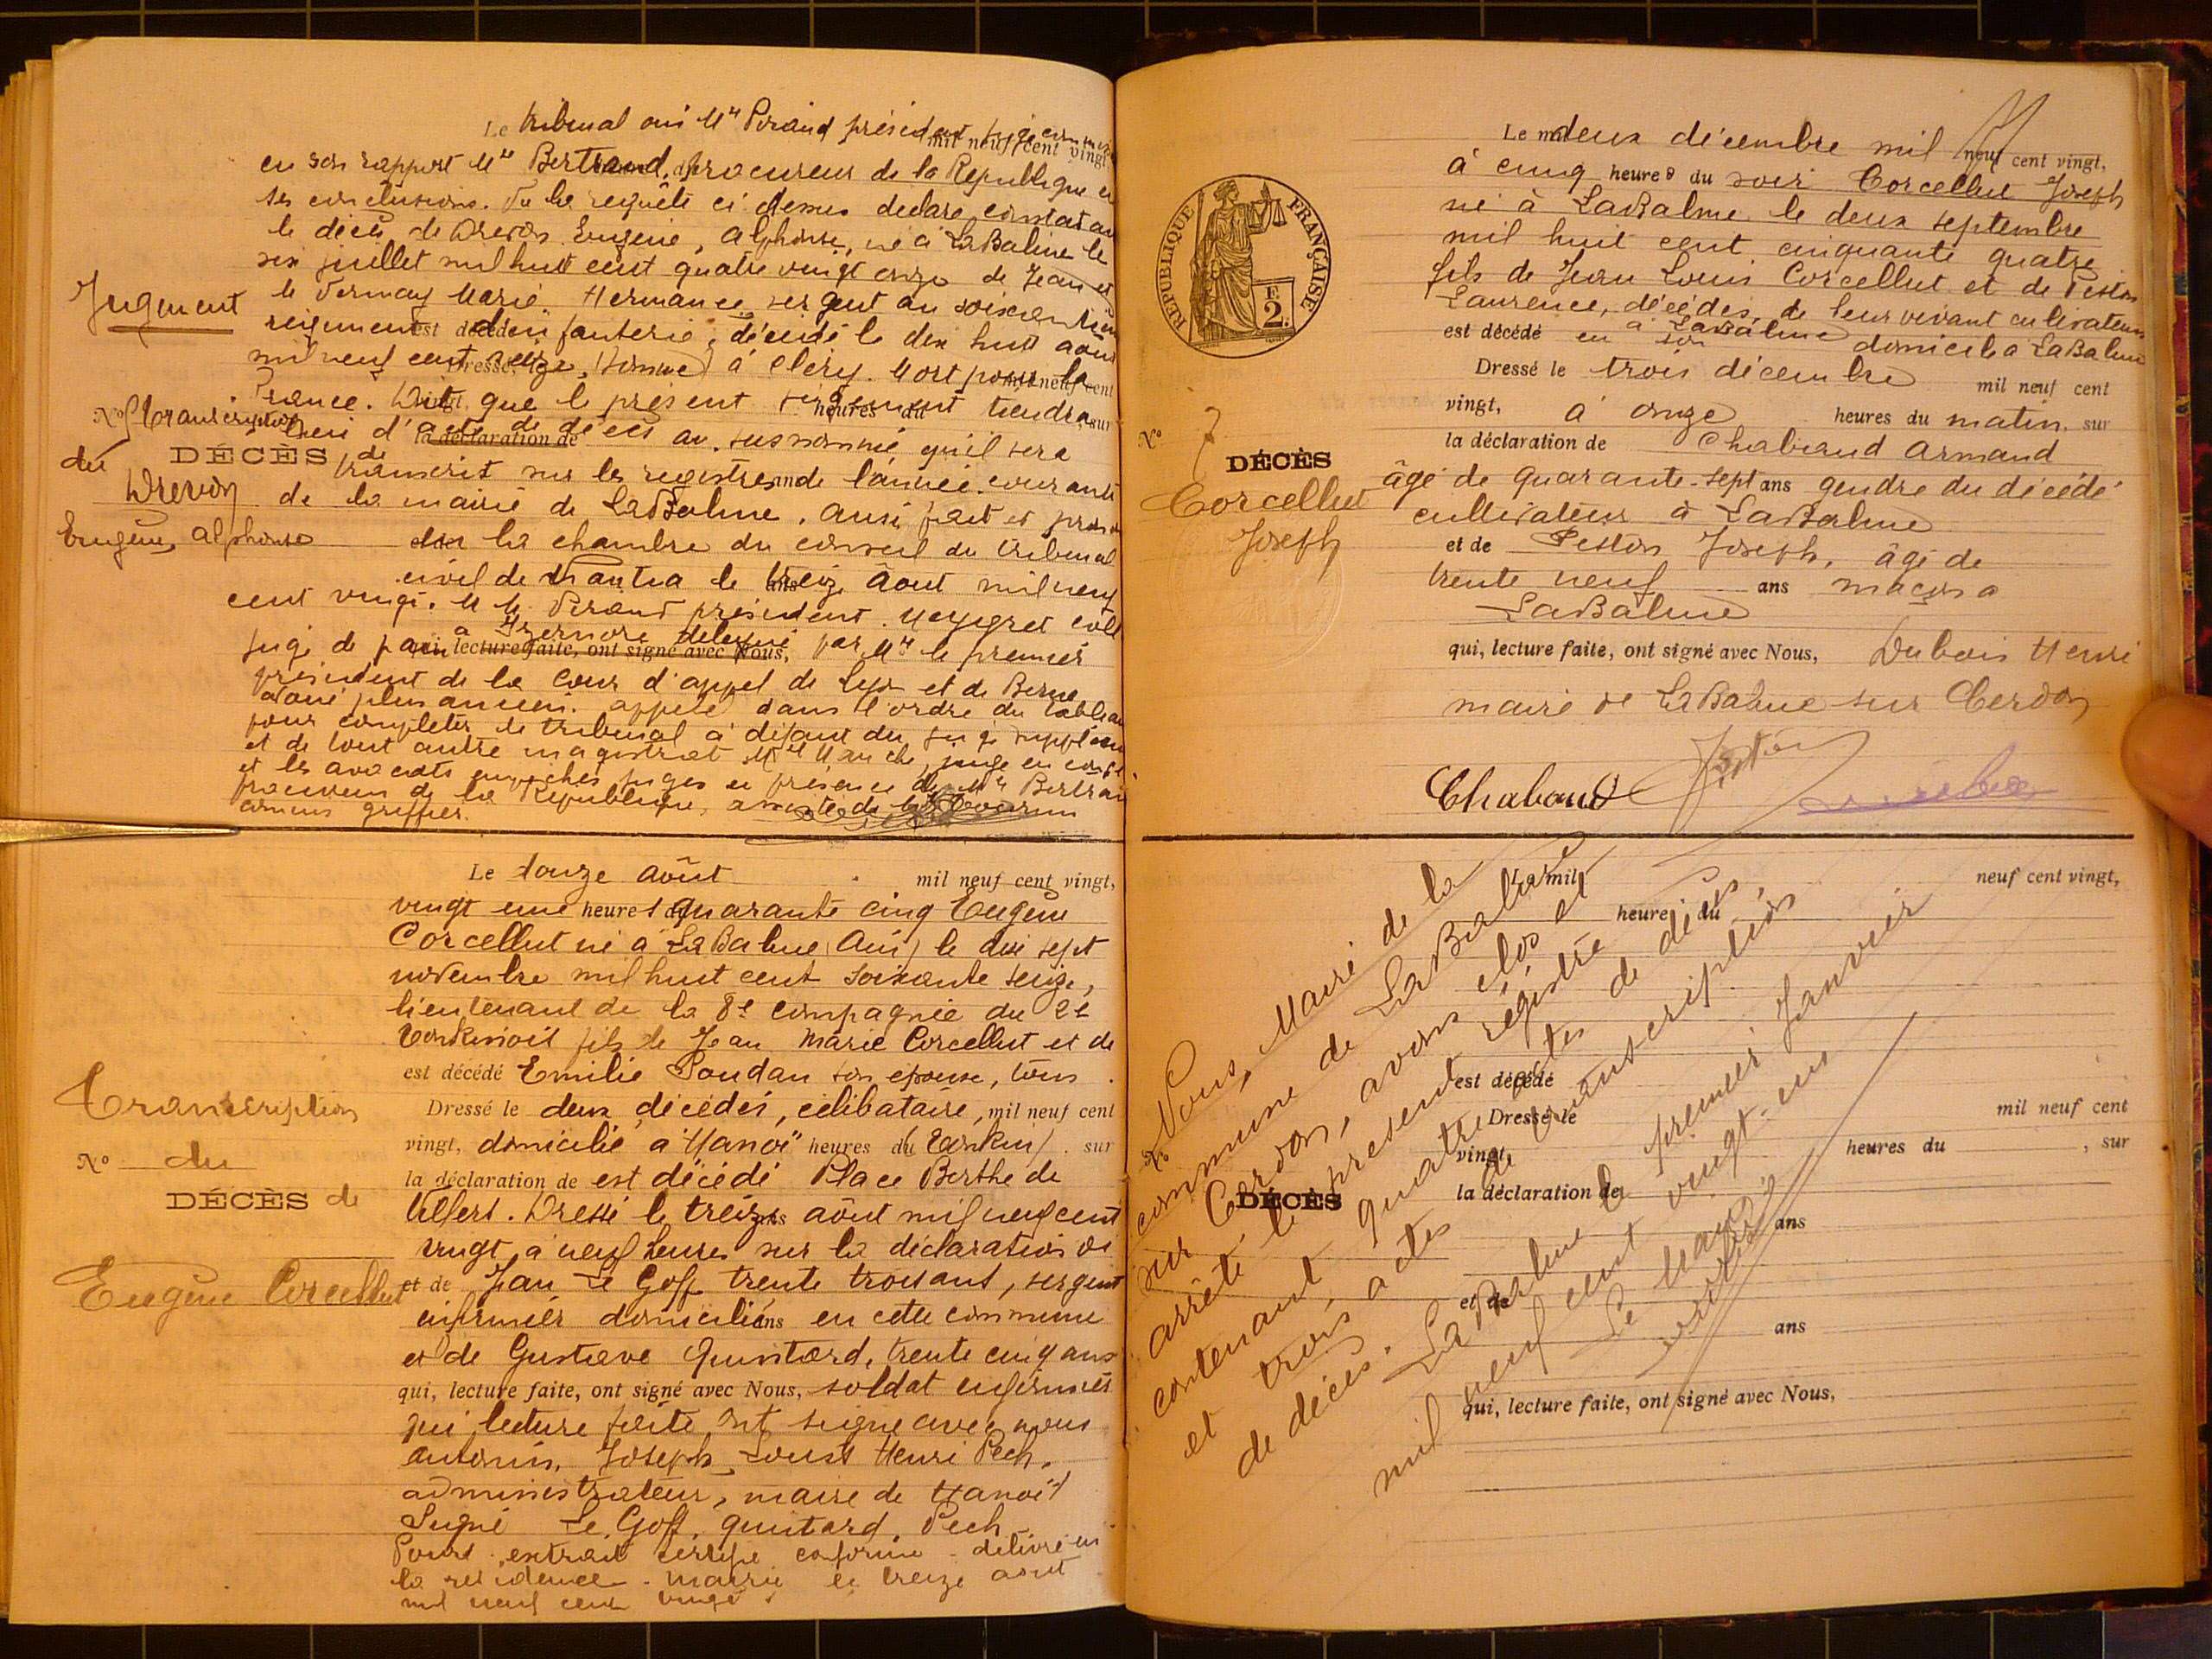 Le tribunal oui Mr Peraud président juge
mil neuf cent vingt
en son rapport Mr Bertrand, procureur de la République en
ses conclusions. Vu la requête ci dessus declare constatant
le décès de Drevon Eugène, Alphonse, né à LaBalme le
six juillet mil huit cent quatre vingt onze de Jean et
de Vernay Marie Hermance, sergent au soixantième
régiment est décédé d'infanterie, décédé le dix huit août
mil neuf cent seize (Somme) à Cléry. Mort pour la
Dressé le mil neuf cent
France. Dit que le présent jugement tiendra
vingt, heures du sur
lieu d'acte de décès au susnommé qu'il sera
la déclaration de
transcrit sur les registres de l'année courante
de la mairie de LaBalme. Ainsi fait et
en la chambre du conseil du tribunal
civil de Nantua le treize Août mil neuf
ans
cent vingt. M M. Peraud président. Meygret
juge de paix à Izernore délégué par Mr le premier
qui, lecture faite, ont signé avec Nous,
président de la Cour d'appel de Lyon et de Berne
avoué plus ancien. appelé dans l'ordre du tableau
pour completer le tribunal à défaut du juge suppléant
et de tout autre magistrat Mr Manche, juge en congé
et les avocats empêchés juges en présence de Mr Bertrand
procureur de la République, assisté de Mr
commis greffier.
Jugement
No Transcription
du DÉCÈS de
Drevon
Eugène Alphonse
Le douze Août mil neuf cent vingt,
vingt une heures quarante cinq Eugène
Corcellut né à LaBalme (Ain) le dix sept
novembre mil huit cent soixante seize,
lieutenant de la 8e compagnie du 2e
Tonkinois fils de Jean Marie Corcellut et de
est décédé Emilie Poudan son épouse, tous
Dressé le deux décédés, célibataire, mil neuf cent
vingt, domicilié à Hanoï heures du (Tonkin) sur
la déclaration de est décédé Place Berthe de
Villers. Dressé le treize août mil neuf cent
vingt à neuf heures sur la déclaration de
et de Jean Le Goff trente trois ans, sergent
infirmier domicilié ans en cette commune
et de Gustave Quintard, trente cinq ans
qui, lecture faite, ont signé avec Nous, soldat infirmier
qui lecture faite ont signé avec nous
Antonin, Joseph Louis Henri Pech,
administrateur, maire de Hanoï
Signé Le Goff, Quintard, Pech
Pour extrait certifié conforme délivré en
la résidence mairie le treize août
mil neuf cent vingt.
Transcription
No du
DÉCÈS de
Eugène Corcellut
RÉPUBLIQUE FRANÇAISE
2 F.
Le mil deux décembre mil neuf cent vingt,
à cinq heures du soir Corcellut Joseph
né à LaBalme le deux septembre
mil huit cent cinquante quatre
fils de Jean Louis Corcellut et de Peston
Laurence, décédés, de leur vivant cultivateurs
à LaBalme
est décédé en son domicile à LaBalme
Dressé le trois décembre mil neuf cent
vingt, à onze heures du matin, sur
la déclaration de Chabaud Armand
âgé de quarante-sept ans gendre du décédé
cultivateur à LaBalme
et de Peston Joseph, âgé de
trente neuf ans maçon à
LaBalme
qui, lecture faite, ont signé avec Nous, Dubois Henri
maire de LaBalme sur Cerdon
Chabaud Peston
No 7
DÉCÈS
Corcellut
Joseph
Le mil neuf cent vingt,
heure du
est décédé
Dressé le mil neuf cent
vingt, heures du , sur
la déclaration de
ans
et de
ans
qui, lecture faite, ont signé avec Nous,
No
DÉCÈS
Nous, Maire de la
commune de LaBalme
sur Cerdon, avons clos et
arrêté le présent régistre
contenant quatre actes de décès,
et trois actes de transcription
de décès. LaBalme le premier Janvier
mil neuf cent vingt-un
Le maire